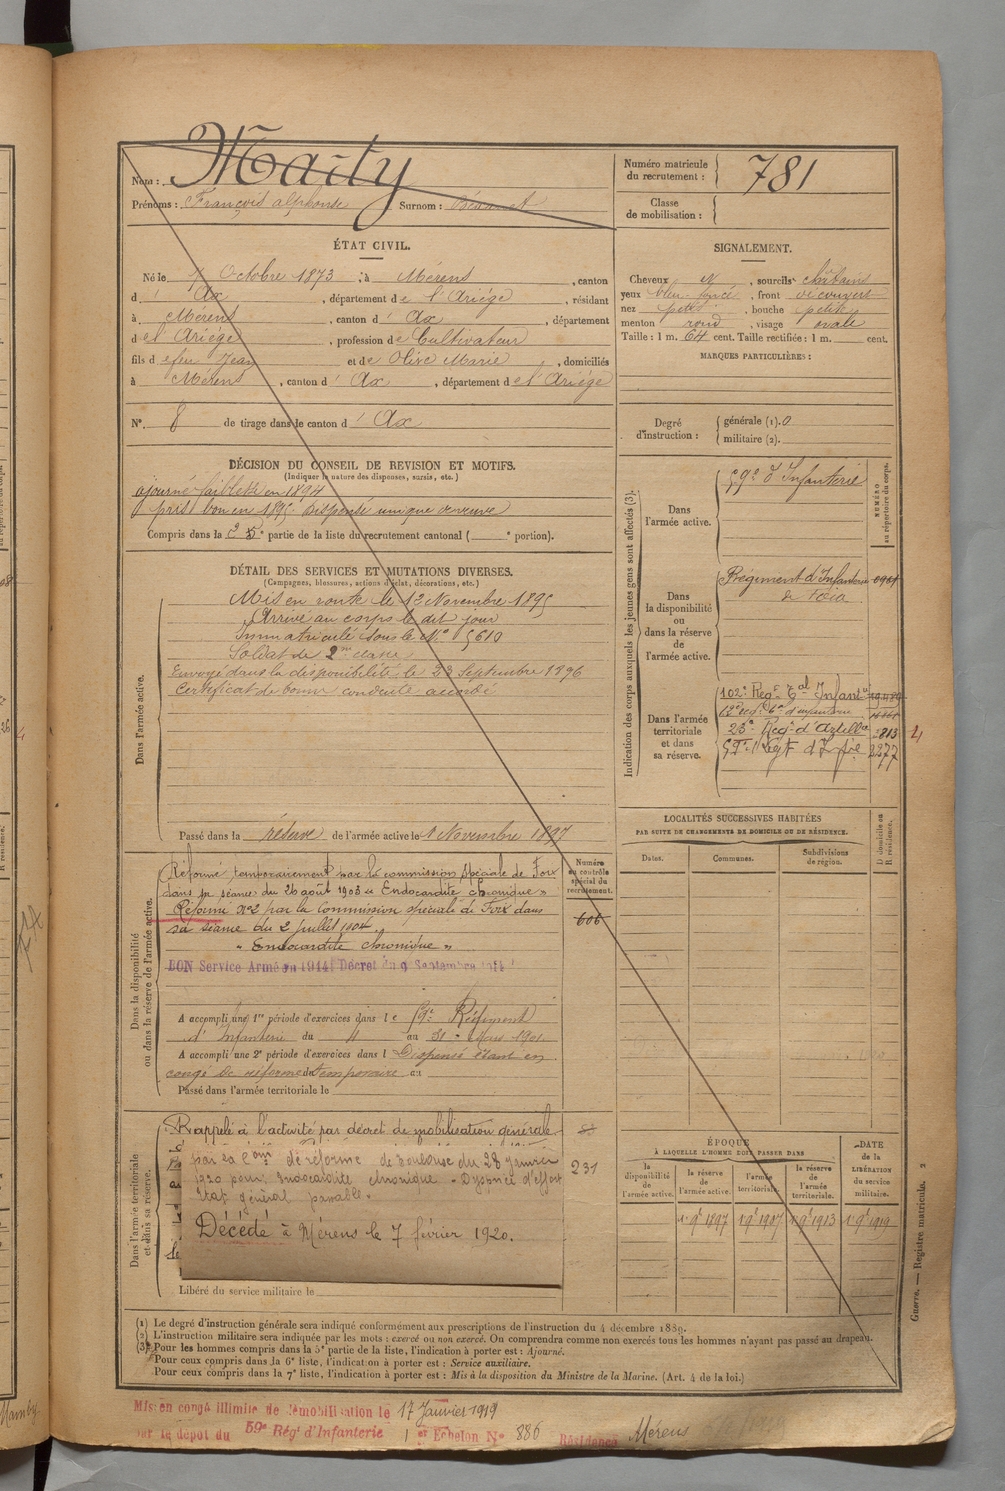 Nom : Marty
Prénoms : François alphonse Surnom :
Numéro matricule du recrutement : 781
Classe de mobilisation :
ÉTAT CIVIL.
Né le Octobre 1873, à Mérens, canton
d' Ax, département de l'Ariége, résidant
à Mérens, canton d' Ax, département
de l'Ariége, profession de Cultivateur
fils de feu Jean et de Olive Marie, domiciliés
à Mérens, canton d' Ax, département de l'Ariége
N° 8 de tirage dans le canton d' Ax
SIGNALEMENT.
Cheveux N, sourcils châtains
yeux bleu foncé, front découvert
nez petit, bouche petite
menton rond, visage ovale
Taille : 1 m. 64 cent. Taille rectifiée : 1 m. cent.
MARQUES PARTICULIÈRES :
Degré d'instruction : générale (1). 0
militaire (2).
DÉCISION DU CONSEIL DE REVISION ET MOTIFS.
(Indiquer la nature des dispenses, sursis, etc.)
ajourné faiblesse en 1894
pris bon en 1895. Dispensé unique de veuve
Compris dans la 5e partie de la liste du recrutement cantonal ( e portion).
DÉTAIL DES SERVICES ET MUTATIONS DIVERSES.
(Campagnes, blessures, actions d'éclat, décorations, etc.)
Dans l'armée active.
Mis en route le 12 Novembre 1895
Arrivé au corps le dit jour
Immatriculé sous le N° 5610
Soldat de 2me classe
Envoyé dans la disponibilité le 23 Septembre 1896
Certificat de bonne conduite accordé
Passé dans la réserve de l'armée active le 1 Novembre 1897
Indication des corps auxquels les jeunes gens sont affectés (3).
NUMÉRO au répertoire du corps.
Dans l'armée active.
59e d'Infanterie
Dans la disponibilité ou dans la réserve de l'armée active.
Régiment d'Infanterie
de Foix
Dans l'armée territoriale et dans sa réserve.
102e Regt Tal Infantie
23e Regt d'Artillie 2813
59e Regt d'Infie 2277
4
LOCALITÉS SUCCESSIVES HABITÉES
PAR SUITE DE CHANGEMENTS DE DOMICILE OU DE RÉSIDENCE.
Dates. Communes. Subdivisions de région. D domicile ou R résidence.
Dans la disponibilité ou dans la réserve de l'armée active.
Numéro au contrôle spécial du recrutement.
606
Réformé temporairement par la commission spéciale de Foix
dans sa séance du 26 août 1903 « Endocardite chronique »
Réformé N°2 par la Commission spéciale de Foix dans
sa séance du 2 juillet 1904
« Endocardite chronique »
BON Service Armé en 1914 Décret du 9 Septembre 1914
A accompli une 1re période d'exercices dans le 59e Régiment
d' Infanterie du 4 au 31 Mars 1901
A accompli une 2e période d'exercices dans l Dispensé étant en
congé de réforme temporaire au
Passé dans l'armée territoriale le
Dans l'armée territoriale et dans sa réserve.
Rappelé à l'activité par décret de mobilisation générale
par la Com de réforme de Toulouse du 28 janvier
1920 pour endocardite chronique. Dyspnée d'effort
Etat général passable.
231
Décédé à Mérens le 7 février 1920.
Libéré du service militaire le
ÉPOQUE
À LAQUELLE L'HOMME DOIT PASSER DANS
la disponibilité de l'armée active. la réserve de l'armée active. l'armée territoriale. la réserve de l'armée territoriale.
DATE de la LIBÉRATION du service militaire.
1 9e 1897 1 9e 1907 1 9e 1913 1 9e 1919
Guerre. — Registre matricule. 2
(1) Le degré d'instruction générale sera indiqué conformément aux prescriptions de l'instruction du 4 décembre 1889.
(2) L'instruction militaire sera indiquée par les mots : exercé ou non exercé. On comprendra comme non exercés tous les hommes n'ayant pas passé au drapeau.
(3) Pour les hommes compris dans la 5e partie de la liste, l'indication à porter est : Ajourné.
Pour ceux compris dans la 6e liste, l'indication à porter est : Service auxiliaire.
Pour ceux compris dans la 7e liste, l'indication à porter est : Mis à la disposition du Ministre de la Marine. (Art. 4 de la loi.)
Mis en congé illimité de démobilisation le 17 Janvier 1919
par le dépôt du 59e Régt d'Infanterie 1er Echelon N° 886 Résidence Mérens